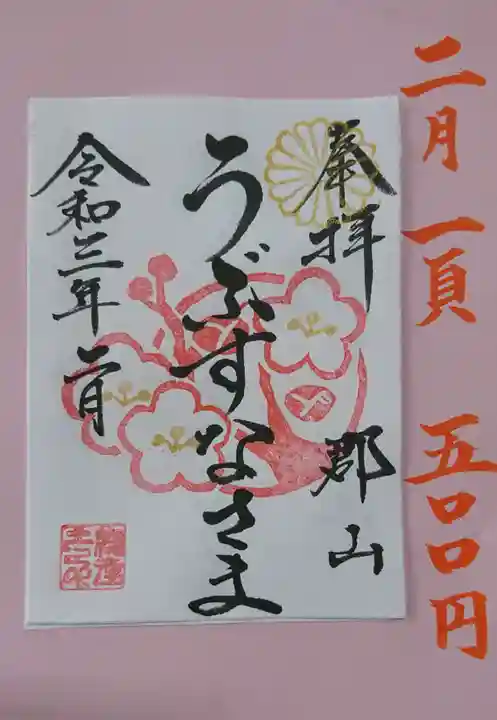 二月 一頁 五〇〇円
奉拝 郡山
うぶすなさま
令和三年 二月